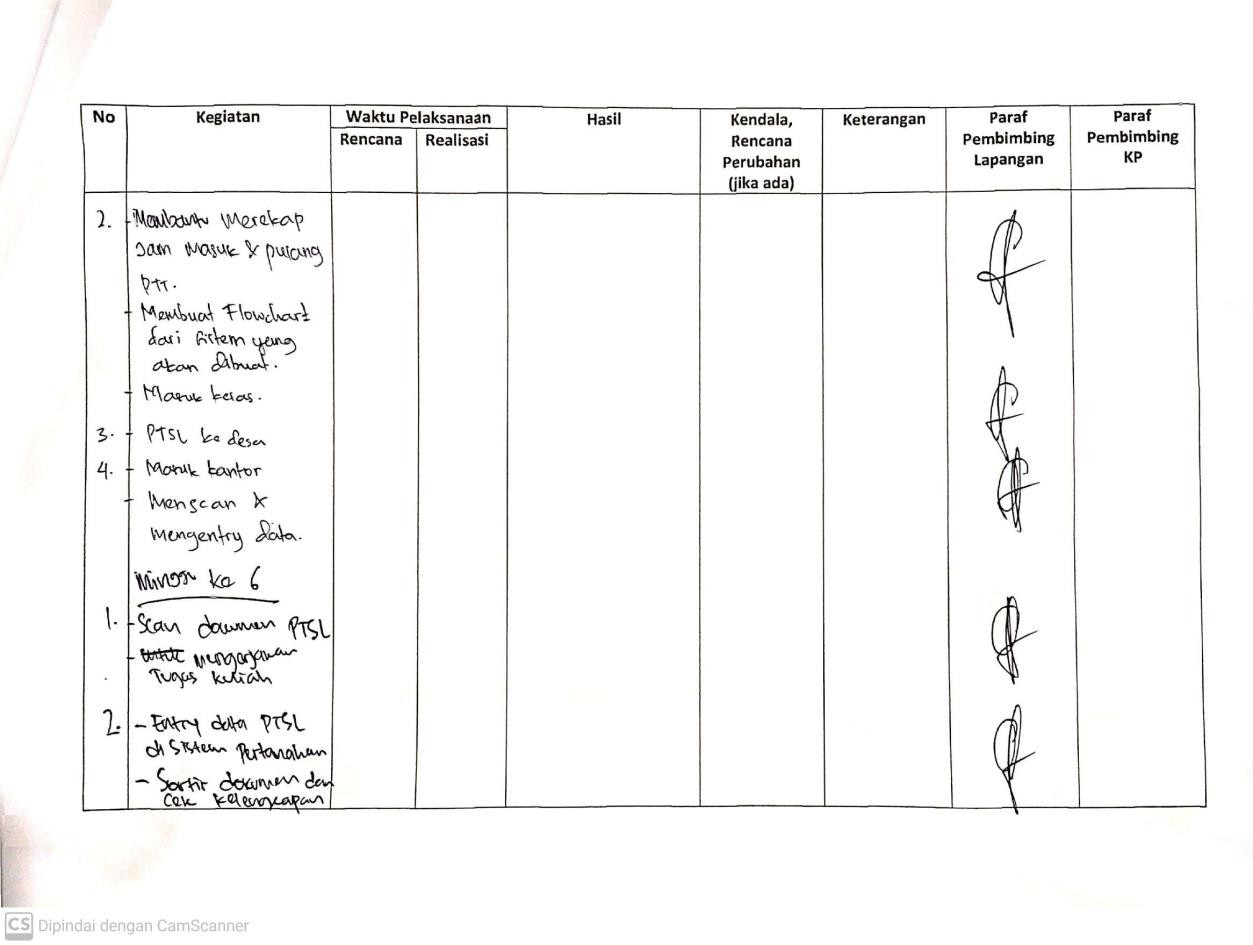 No
Kegiatan
Waktu Pelaksanaan
Rencana
Realisasi
Hasil
Kendala,
Rencana
Perubahan
(jika ada)
Keterangan
Paraf
Pembimbing
Lapangan
Paraf
Pembimbing
KP
2. - Membantu Merekap
Jam Masuk & pulang
PTT.
- Membuat Flowchart
dari sistem yang
akan dibuat.
- Masuk kelas.
3. - PTSL ke desa
4. - Masuk kantor
- Menscan &
mengentry data.
Minggu ke 6
1. - Scan dokumen PTSL
- untuk mengerjakan
Tugas kuliah
2. - Entry data PTSL
di Sistem Pertanahan
- Sortir dokumen dan
Cek kelengkapan
CS Dipindai dengan CamScanner